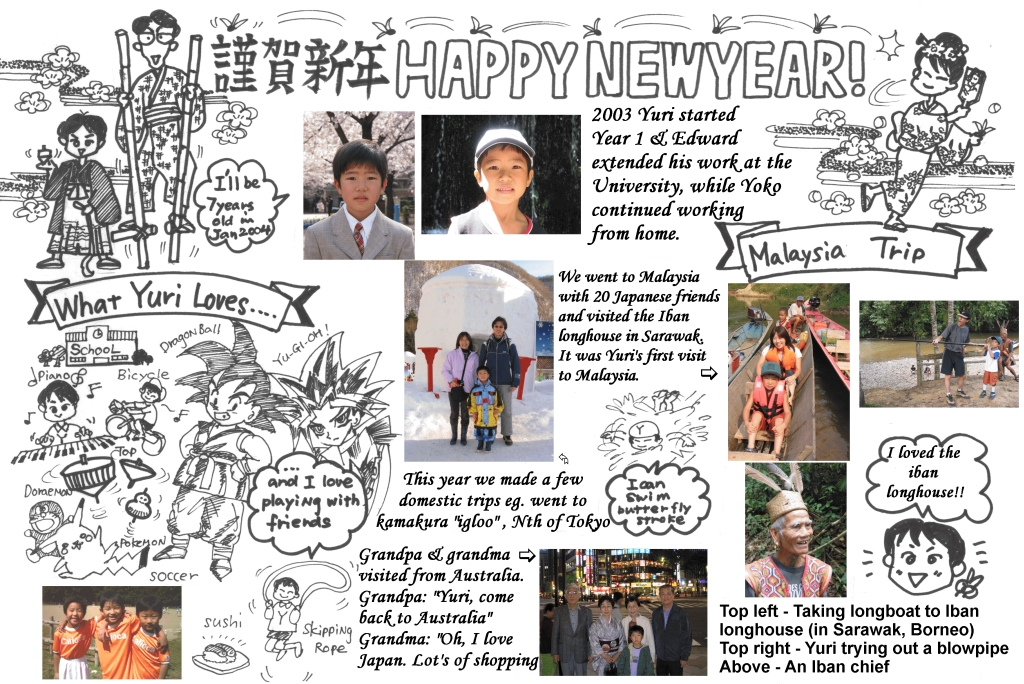 謹賀新年 HAPPY NEW YEAR!
I'll be
7 years
old in
Jan 2004
2003 Yuri started
Year 1 & Edward
extended his work at the
University, while Yoko
continued working
from home.
Malaysia Trip
What Yuri Loves....
SCHOOL
Piano
Bicycle
DragonBall
Yu-GI-OH!
Top
Doraemon
Pokemon
soccer
... and I love
playing with
friends
sushi
skipping
Rope
We went to Malaysia
with 20 Japanese friends
and visited the Iban
longhouse in Sarawak.
It was Yuri's first visit
to Malaysia.
This year we made a few
domestic trips eg. went to
kamakura "igloo" , Nth of Tokyo
I can
swim
butterfly
stroke
Grandpa & grandma
visited from Australia.
Grandpa: "Yuri, come
back to Australia"
Grandma: "Oh, I love
Japan. Lot's of shopping
I loved the
iban
longhouse!!
Top left - Taking longboat to Iban
longhouse (in Sarawak, Borneo)
Top right - Yuri trying out a blowpipe
Above - An Iban chief